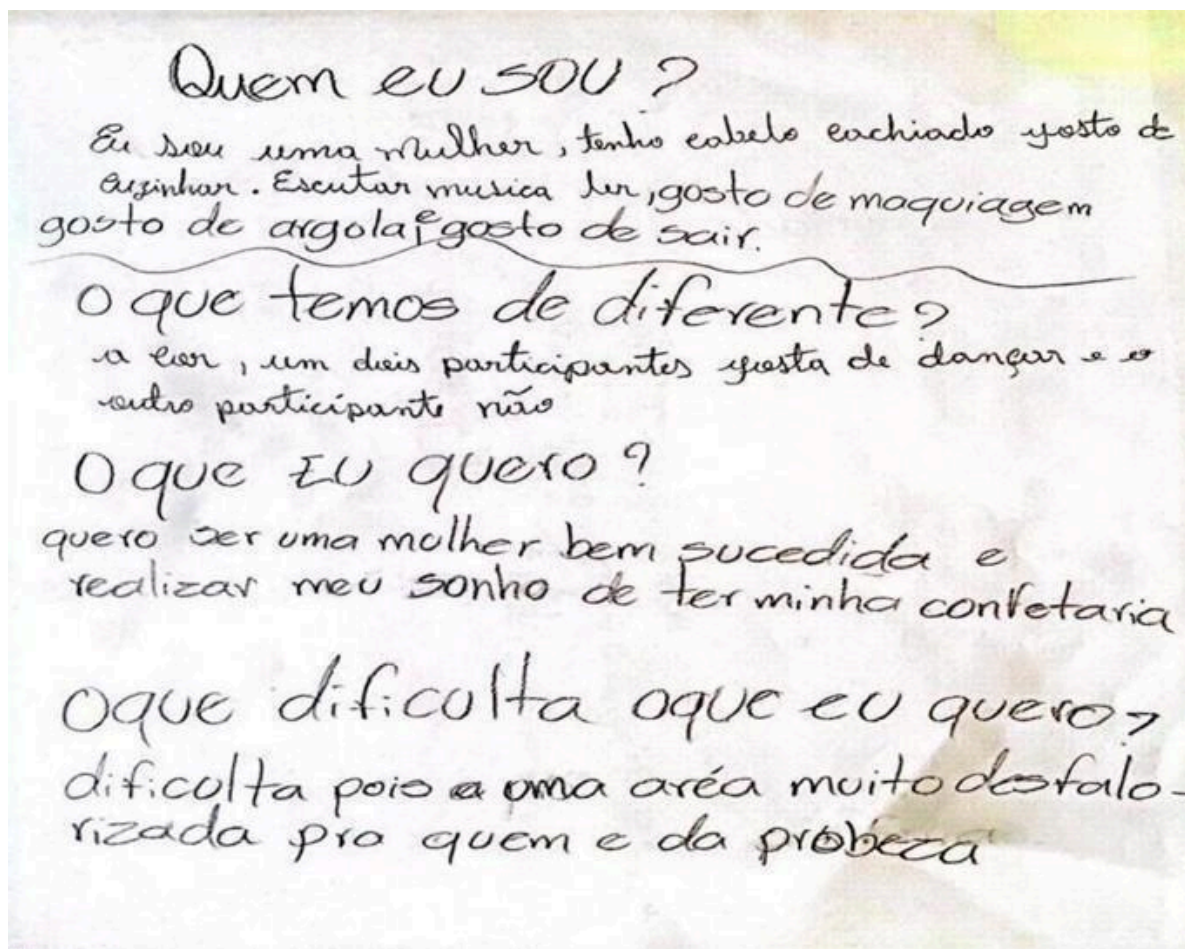 Quem eu sou ?
Eu sou uma mulher, tenho cabelo cachiado gosto de
cuzinhar. Escutar musica ler, gosto de maquiagem
gosto de argola, e gosto de sair.
O que temos de diferente?
a cor, um dois participantes gosta de dançar e o
outro participante não
O que EU quero ?
quero ser uma mulher bem sucedida e
realizar meu sonho de ter minha confetaria
Oque dificulta oque eu quero?
dificulta pois a uma aréa muito desfalo-
rizada pra quem e da probeza